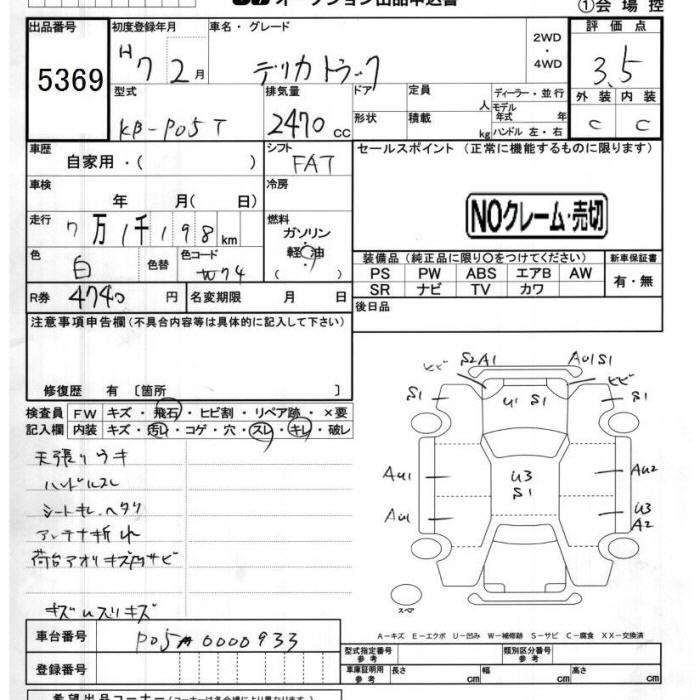 オークション出品申込書
①会 場 控
出品番号
5369
初度登録年月
H7 2月
車名・グレード
デリカトラック
2WD
・
4WD
評 価 点
3.5
外 装
内 装
C
C
型式
KB-P05T
排気量
2470cc
ドア
形状
定員
人
積載
kg
ディーラー・並 行
モデル
年式
年
ハンドル 左・右
車歴
自家用・( )
シフト
FAT
セールスポイント (正常に機能するものに限ります)
車検
年 月( 日)
冷房
NOクレーム・売切
走行
7万1千198km
燃料
ガソリン
・
軽 油
色
白
色替
色コード
W74
装備品 (純正品に限り○をつけてください)
新車保証書
PS PW ABS エアB AW
SR ナビ TV カワ
有・無
R券
4740円
名変期限 月 日
後日品
注意事項申告欄(不具合内容等は具体的に記入して下さい)
修復歴 有 〔箇所 〕
検査員
記入欄
FW キズ・飛石・ヒビ割・リペア跡・×要
内装 キズ・汚レ・コゲ・穴・スレ・キレ・破レ
天張りウキ
ハンドルスレ
シートキレ・ヘタリ
アンテナ折れ
荷台アオリキズ凹サビ
キズUスリキズ
ヒビ S2A1 AU1S1 ヒビ
S1 U1 S1 S1
AU1 U3 S1 AU2
AU1 U3 A2
スペア
A-キズ E-エクボ U-凹み W-補修跡 S-サビ C-腐食 XX-交換済
車台番号
P05T-0000933
登録番号
型式指定番号
参 考
類別区分番号
参 考
車庫証明用
参 考
長さ cm
幅 cm
高さ cm
希望出品コーナー(コーナーは各会場により異なります)